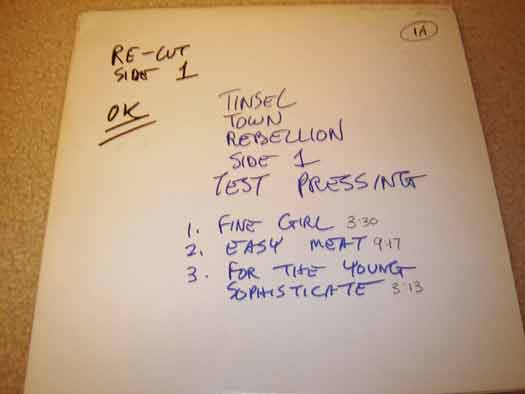 1A
RE-CUT
SIDE 1
OK
TINSEL
TOWN
REBELLION
SIDE 1
TEST PRESSING
1. FINE GIRL 3:30
2. EASY MEAT 9:17
3. FOR THE YOUNG
SOPHISTICATE 3:13